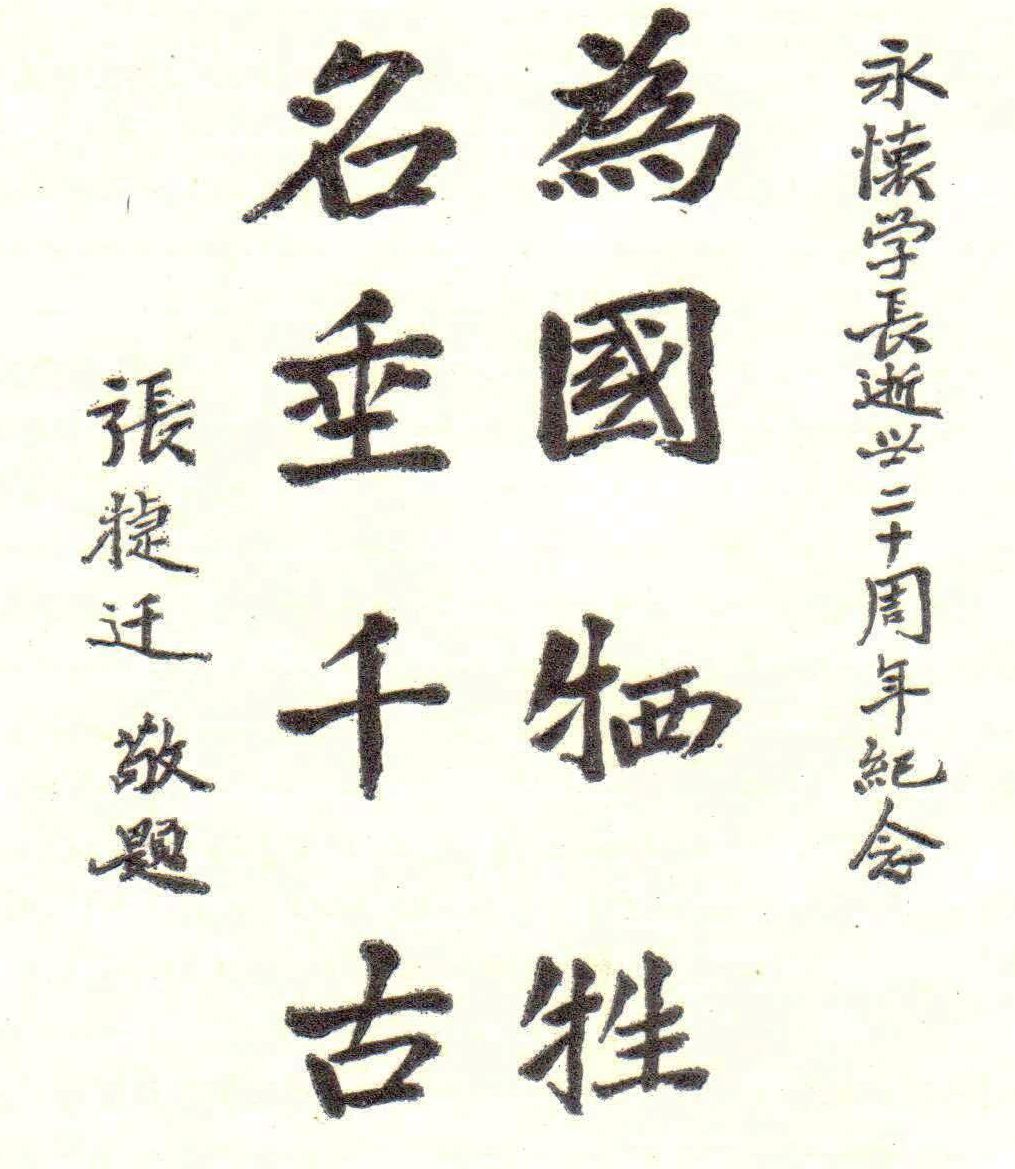 永懷学長逝世二十周年紀念
為國牺牲
名垂千古
張捷迁 敬題